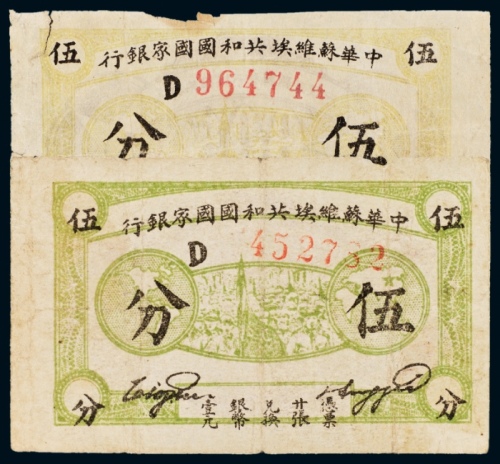 伍 中華蘇維埃共和國國家銀行 伍
D 964744
伍 分
伍 中華蘇維埃共和國國家銀行 伍
D 452732
伍 分
分 憑票廿張兌換銀幣壹元 分